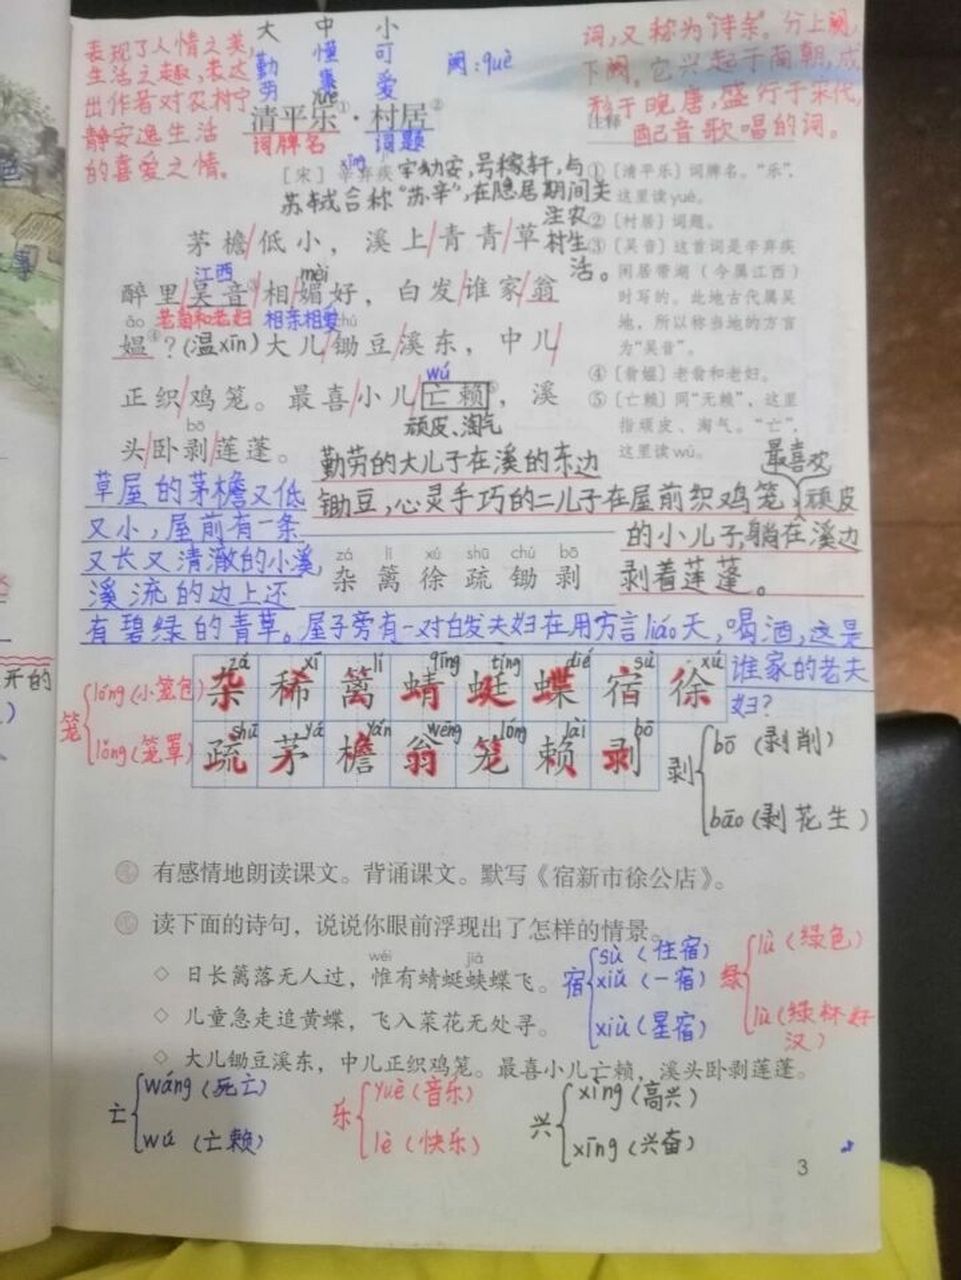 大 中 小
勤劳 懂事 可爱
阕:què
表现了人情之美,
生活之趣,表达
出作者对农村宁
静安逸生活
的喜爱之情。
词,又称为“诗余”。分上阕,
下阕。它兴起于南朝,成
形于晚唐,盛行于宋代,
配音歌唱的词。
yuè
清平乐①·村居②
词牌名 词题
[宋]辛弃疾 字幼安,号稼轩,与
苏轼合称“苏辛”,在隐居期间关
注农
村生
活。
注释
①〔清平乐〕词牌名。“乐”,
这里读yuè。
②〔村居〕词题。
③〔吴音〕这首词是辛弃疾
闲居带湖(今属江西)
时写的。此地古代属吴
地,所以称当地的方言
为“吴音”。
④〔翁媪〕老翁和老妇。
⑤〔亡赖〕同“无赖”,这里
指顽皮、淘气。“亡”,
这里读wú。
茅檐/低小,溪上/青青/草
江西 mèi
醉里/吴音③/相/媚好,白发/谁家/翁
ǎo 老翁和老妇 相亲相爱 chú
媪④?(温xīn)大儿/锄豆/溪东,中儿/
wú
正织/鸡笼。最喜/小儿/亡赖⑤,溪
顽皮、淘气
bō
头/卧剥/莲蓬。
勤劳的大儿子在溪的东边
锄豆,心灵手巧的二儿子在屋前织鸡笼,最喜欢顽皮
的小儿子,躺在溪边
剥着莲蓬。
草屋的茅檐又低
又小,屋前有一条
又长又清澈的小溪,
溪流的边上还
有碧绿的青草。屋子旁有一对白发夫妇在用方言liáo天,喝酒,这是
谁家的老夫
妇?
zá lí xú shū chú bō
杂 篱 徐 疏 锄 剥
zá xī lí qīng tíng dié sù xú
杂 稀 篱 蜻 蜓 蝶 宿 徐
shū yá yán wēng lóng lài bō
疏 茅 檐 翁 笼 赖 剥
笼 lóng(小笼包)
lǒng(笼罩)
剥 bō(剥削)
bāo(剥花生)
有感情地朗读课文。背诵课文。默写《宿新市徐公店》。
读下面的诗句,说说你眼前浮现出了怎样的情景。
wéi jiá
◇ 日长篱落无人过,惟有蜻蜓蛱蝶飞。
◇ 儿童急走追黄蝶,飞入菜花无处寻。
◇ 大儿锄豆溪东,中儿正织鸡笼。最喜小儿亡赖,溪头卧剥莲蓬。
宿 sù(住宿)
xiǔ(一宿)
xiù(星宿)
绿 lǜ(绿色)
lù(绿林好
汉)
亡 wáng(死亡)
wú(亡赖)
乐 yuè(音乐)
lè(快乐)
兴 xìng(高兴)
xīng(兴奋)
3
开的